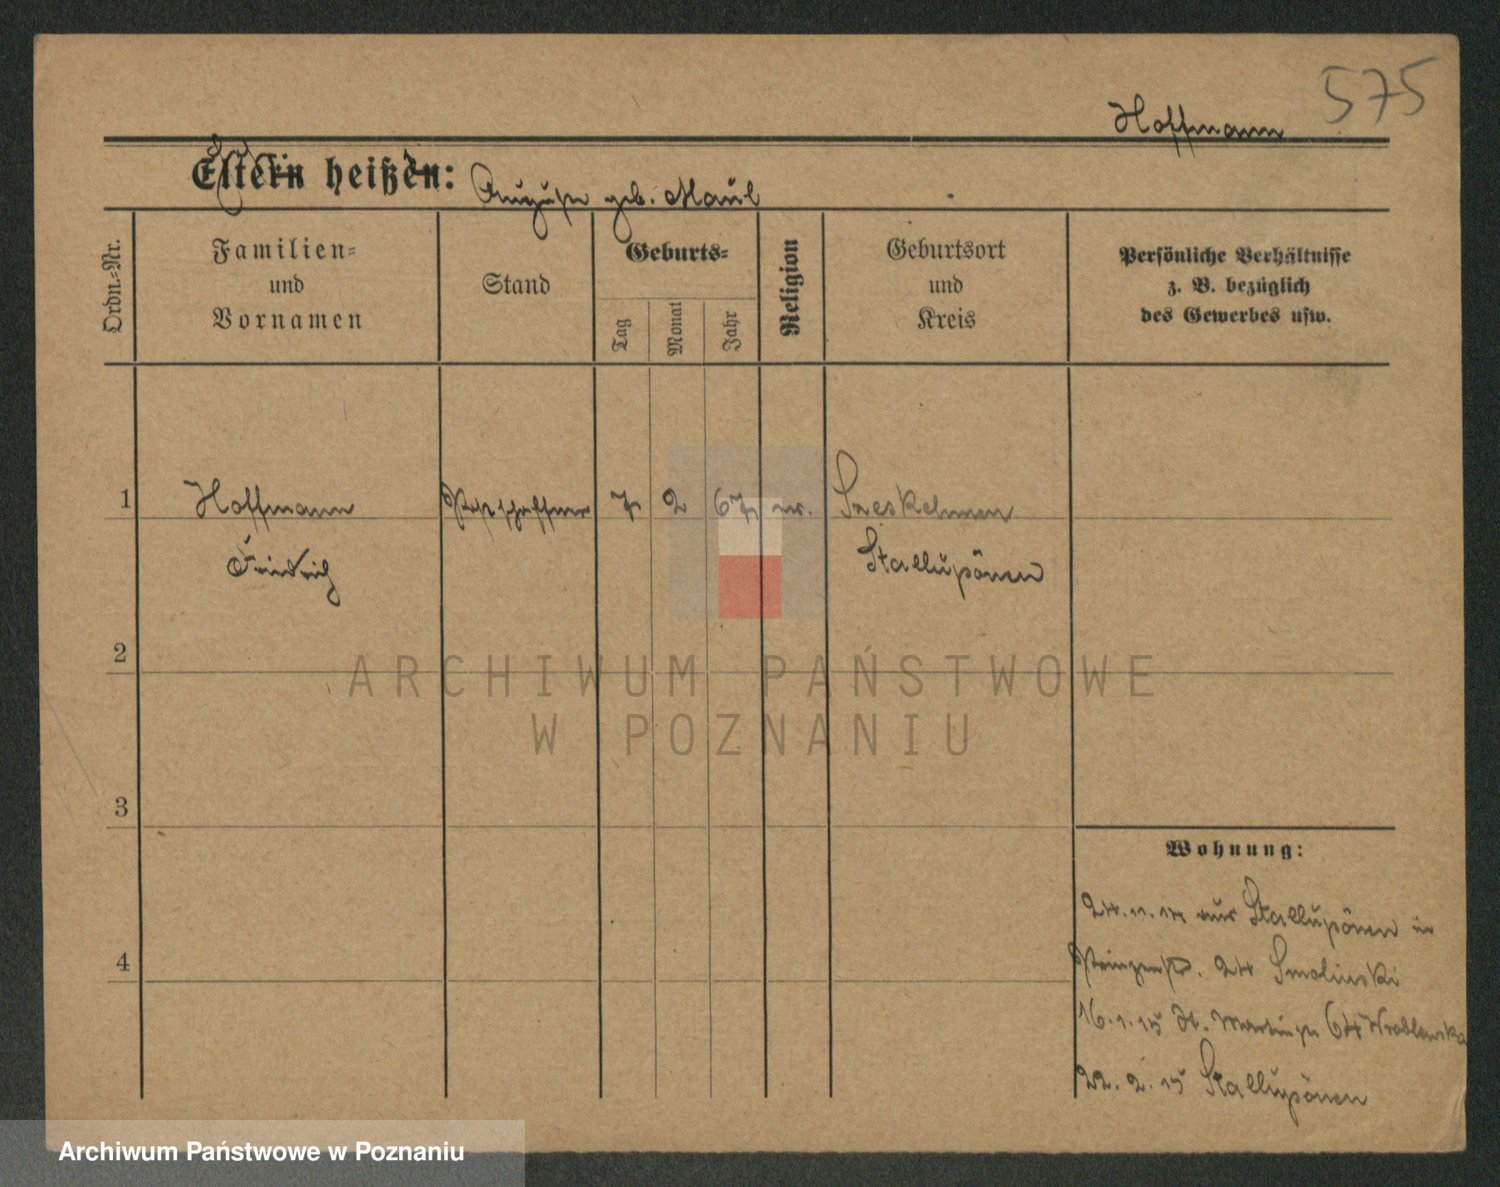 575
Hoffmann
Eltern heißen:
Auguste geb. Maul
Ordn.-Nr.
Familien-
und
Vornamen
Stand
Geburts-
Tag
Monat
Jahr
Religion
Geburtsort
und
Kreis
Persönliche Verhältnisse
z. B. bezüglich
des Gewerbes usw.
1
Hoffmann Postschaffner 7. 2 67 ev. Szeskehmen
Friedrich Stallupönen
2
ARCHIWUM PAŃSTWOWE
W POZNANIU
3
Wohnung:
24.11.14 aus Stallupönen in
4
Prinzenstr. 24 Smolinski
16.1.15 St. Martinstr 64 Wroblewska
22.2.15 Stallupönen
Archiwum Państwowe w Poznaniu